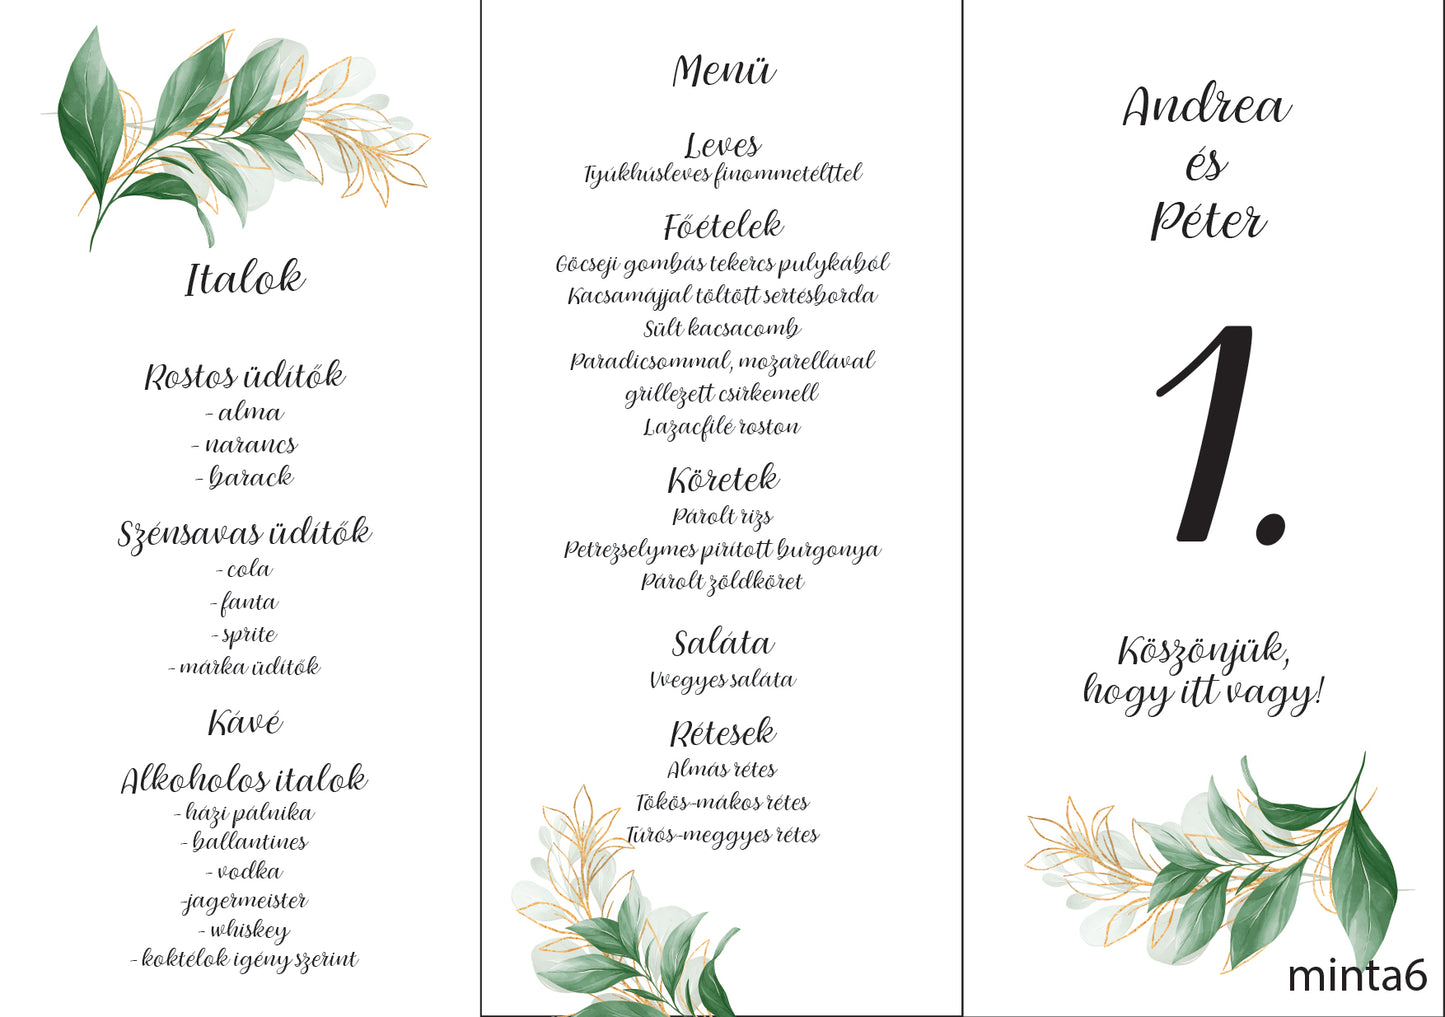 Italok
Rostos üdítők
- alma
- narancs
- barack
Szénsavas üdítők
- cola
- fanta
- sprite
- márka üdítők
Kávé
Alkoholos italok
- házi pálnika
- ballantines
- vodka
-jagermeister
- whiskey
- koktélok igény szerint
Menü
Leves
Tyúkhúsleves finommetélttel
Főételek
Göcseji gombás tekercs pulykából
Kacsamájjal töltött sertésborda
Sült kacsacomb
Paradicsommal, mozarellával
grillezett csirkemell
Lazacfilé roston
Köretek
Párolt rizs
Petrezselymes pirított burgonya
Párolt zöldköret
Saláta
Vvegyes saláta
Rétesek
Almás rétes
Tökös-mákos rétes
Túrós-meggyes rétes
Andrea
és
Péter
1.
Köszönjük,
hogy itt vagy!
minta6